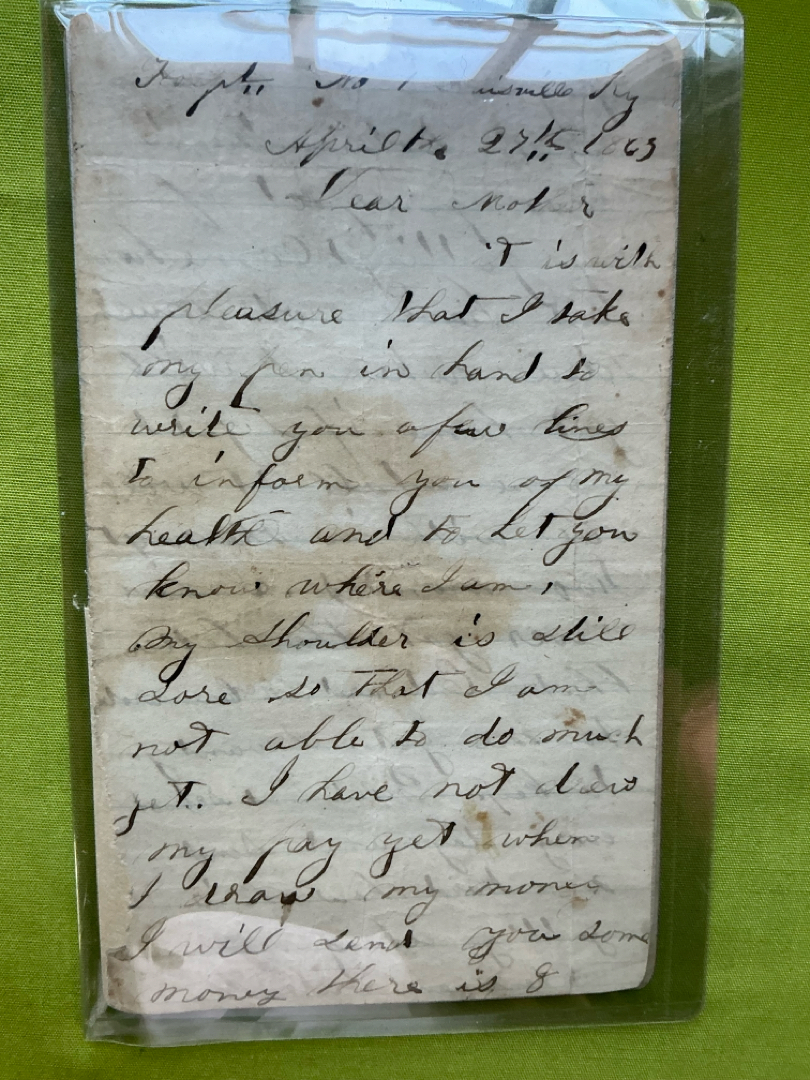 Hospt. No 1 Louisville Ky
April th. 27th 1863
Dear Mother
it is with
pleasure that I take
my pen in hand to
write you afew lines
to inform you of my
health and to Let you
know where I am,
My shoulder is still
sore so that I am
not able to do much
yet. I have not drew
my pay yet when
I draw my money
I will send you some
money there is 8